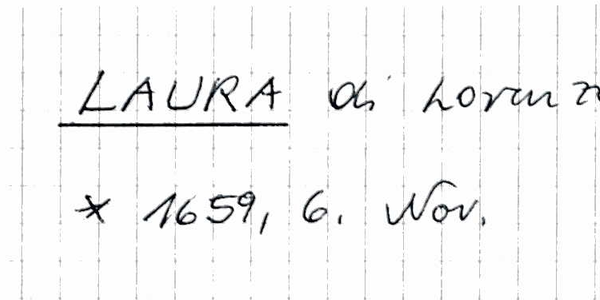 LAURA di Lorenzo
* 1659, 6. Nov.